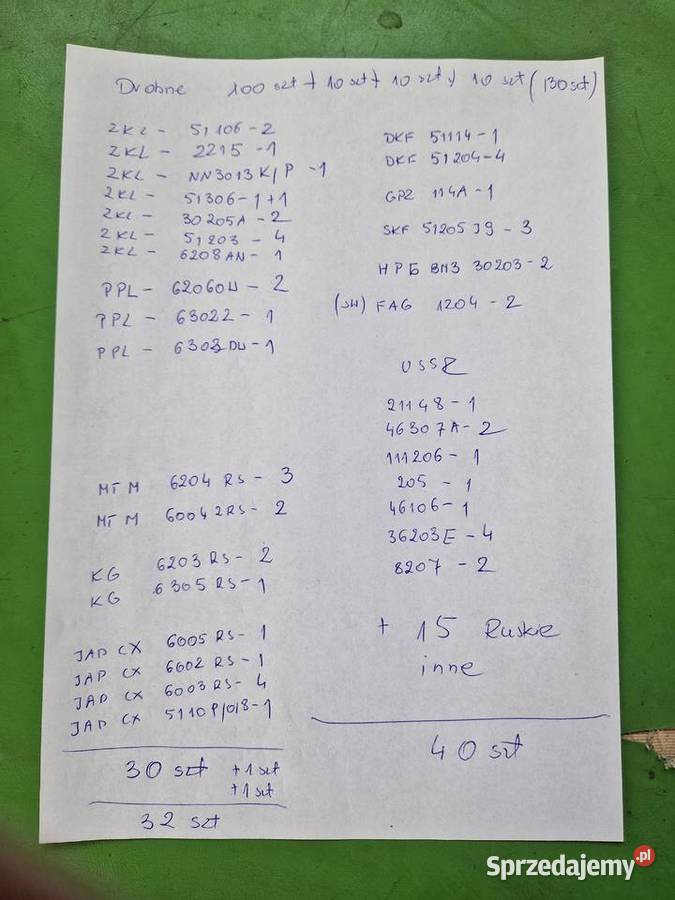 Drobne 100 szt + 10 szt + 10 szt + 10 szt (130 szt)
ZKL - 51106 - 2
ZKL - 2215 - 1
ZKL - NN3013K/P - 1
ZKL - 51306 - 1 + 1
ZKL - 30205A - 2
ZKL - 51203 - 4
ZKL - 6208AN - 1
PPL - 62060W - 2
PPL - 63022 - 1
PPL - 6303 DW - 1
MTM 6204 RS - 3
MTM 60042RS - 2
KG 6203 RS - 2
KG 6305 RS - 1
JAP CX 6005 RS - 1
JAP CX 6002 RS - 1
JAP CX 6003 RS - 4
JAP CX 5110P/018 - 1
30 szt + 1 szt
+ 1 szt
32 szt
DKF 51114 - 1
DKF 51204 - 4
GPZ 114A - 1
SKF 51205 J9 - 3
НРБ ВМЗ 30203 - 2
(SH) FAG 1204 - 2
USSR
21148 - 1
46307A - 2
111206 - 1
205 - 1
46106 - 1
36203E - 4
8207 - 2
+ 15 Ruskie
inne
40 szt
Sprzedajemy.pl